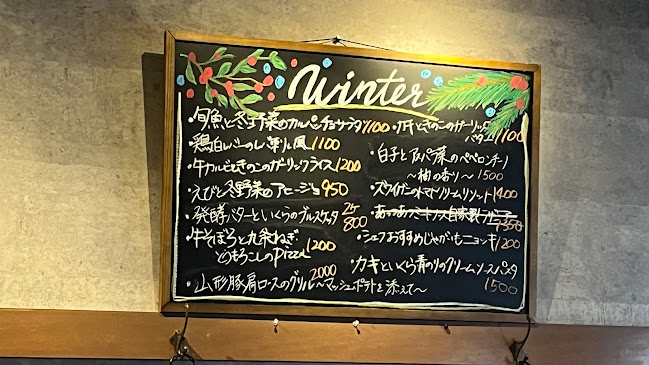 Winter
・旬魚と冬野菜のカルパッチョサラダ 1100
・鶏白レバーのレバニラ風 1100
・牛カルビときのこのガーリックライス 1200
・えびと冬野菜のアヒージョ 950
・発酵バターといくらのブルスケッタ 2ケ 800
・牛そぼろと九条ねぎ
とうもろこしのpizza 1200
・山形豚肩ロースのグリル 2000
〜マッシュポテトを添えて〜
・カキときのこのガーリック
バター 1100
・白子とアスパラ菜のペペロンチーノ
〜柚の香り〜 1500
・ズワイガニのトマトクリームリゾット 1400
1350
・シェフおすすめじゃがいもニョッキ 1200
・カキといくら青のりのクリームソースパスタ
1500